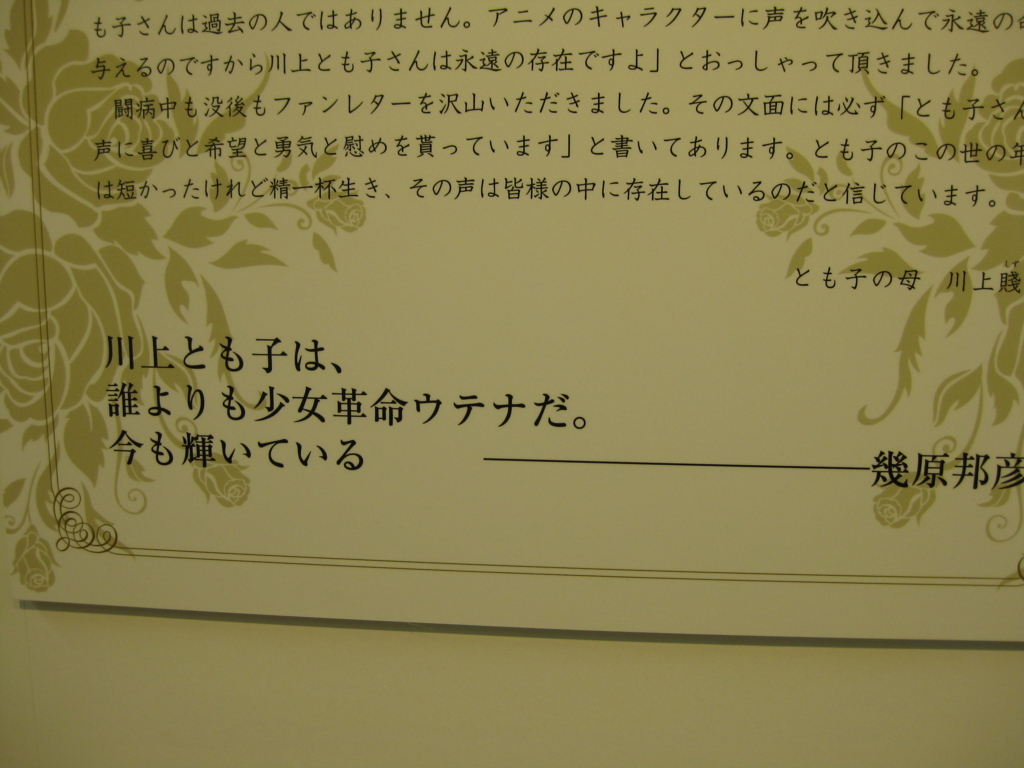 も子さんは過去の人ではありません。アニメのキャラクターに声を吹き込んで永遠の
与えるのですから川上とも子さんは永遠の存在ですよ」とおっしゃって頂きました。
闘病中も没後もファンレターを沢山いただきました。その文面には必ず「とも子さん
声に喜びと希望と勇気と慰めを貰っています」と書いてあります。とも子のこの世の年
は短かったけれど精一杯生き、その声は皆様の中に存在しているのだと信じています。
とも子の母　川上賤
川上とも子は、
誰よりも少女革命ウテナだ。
今も輝いている
幾原邦彦